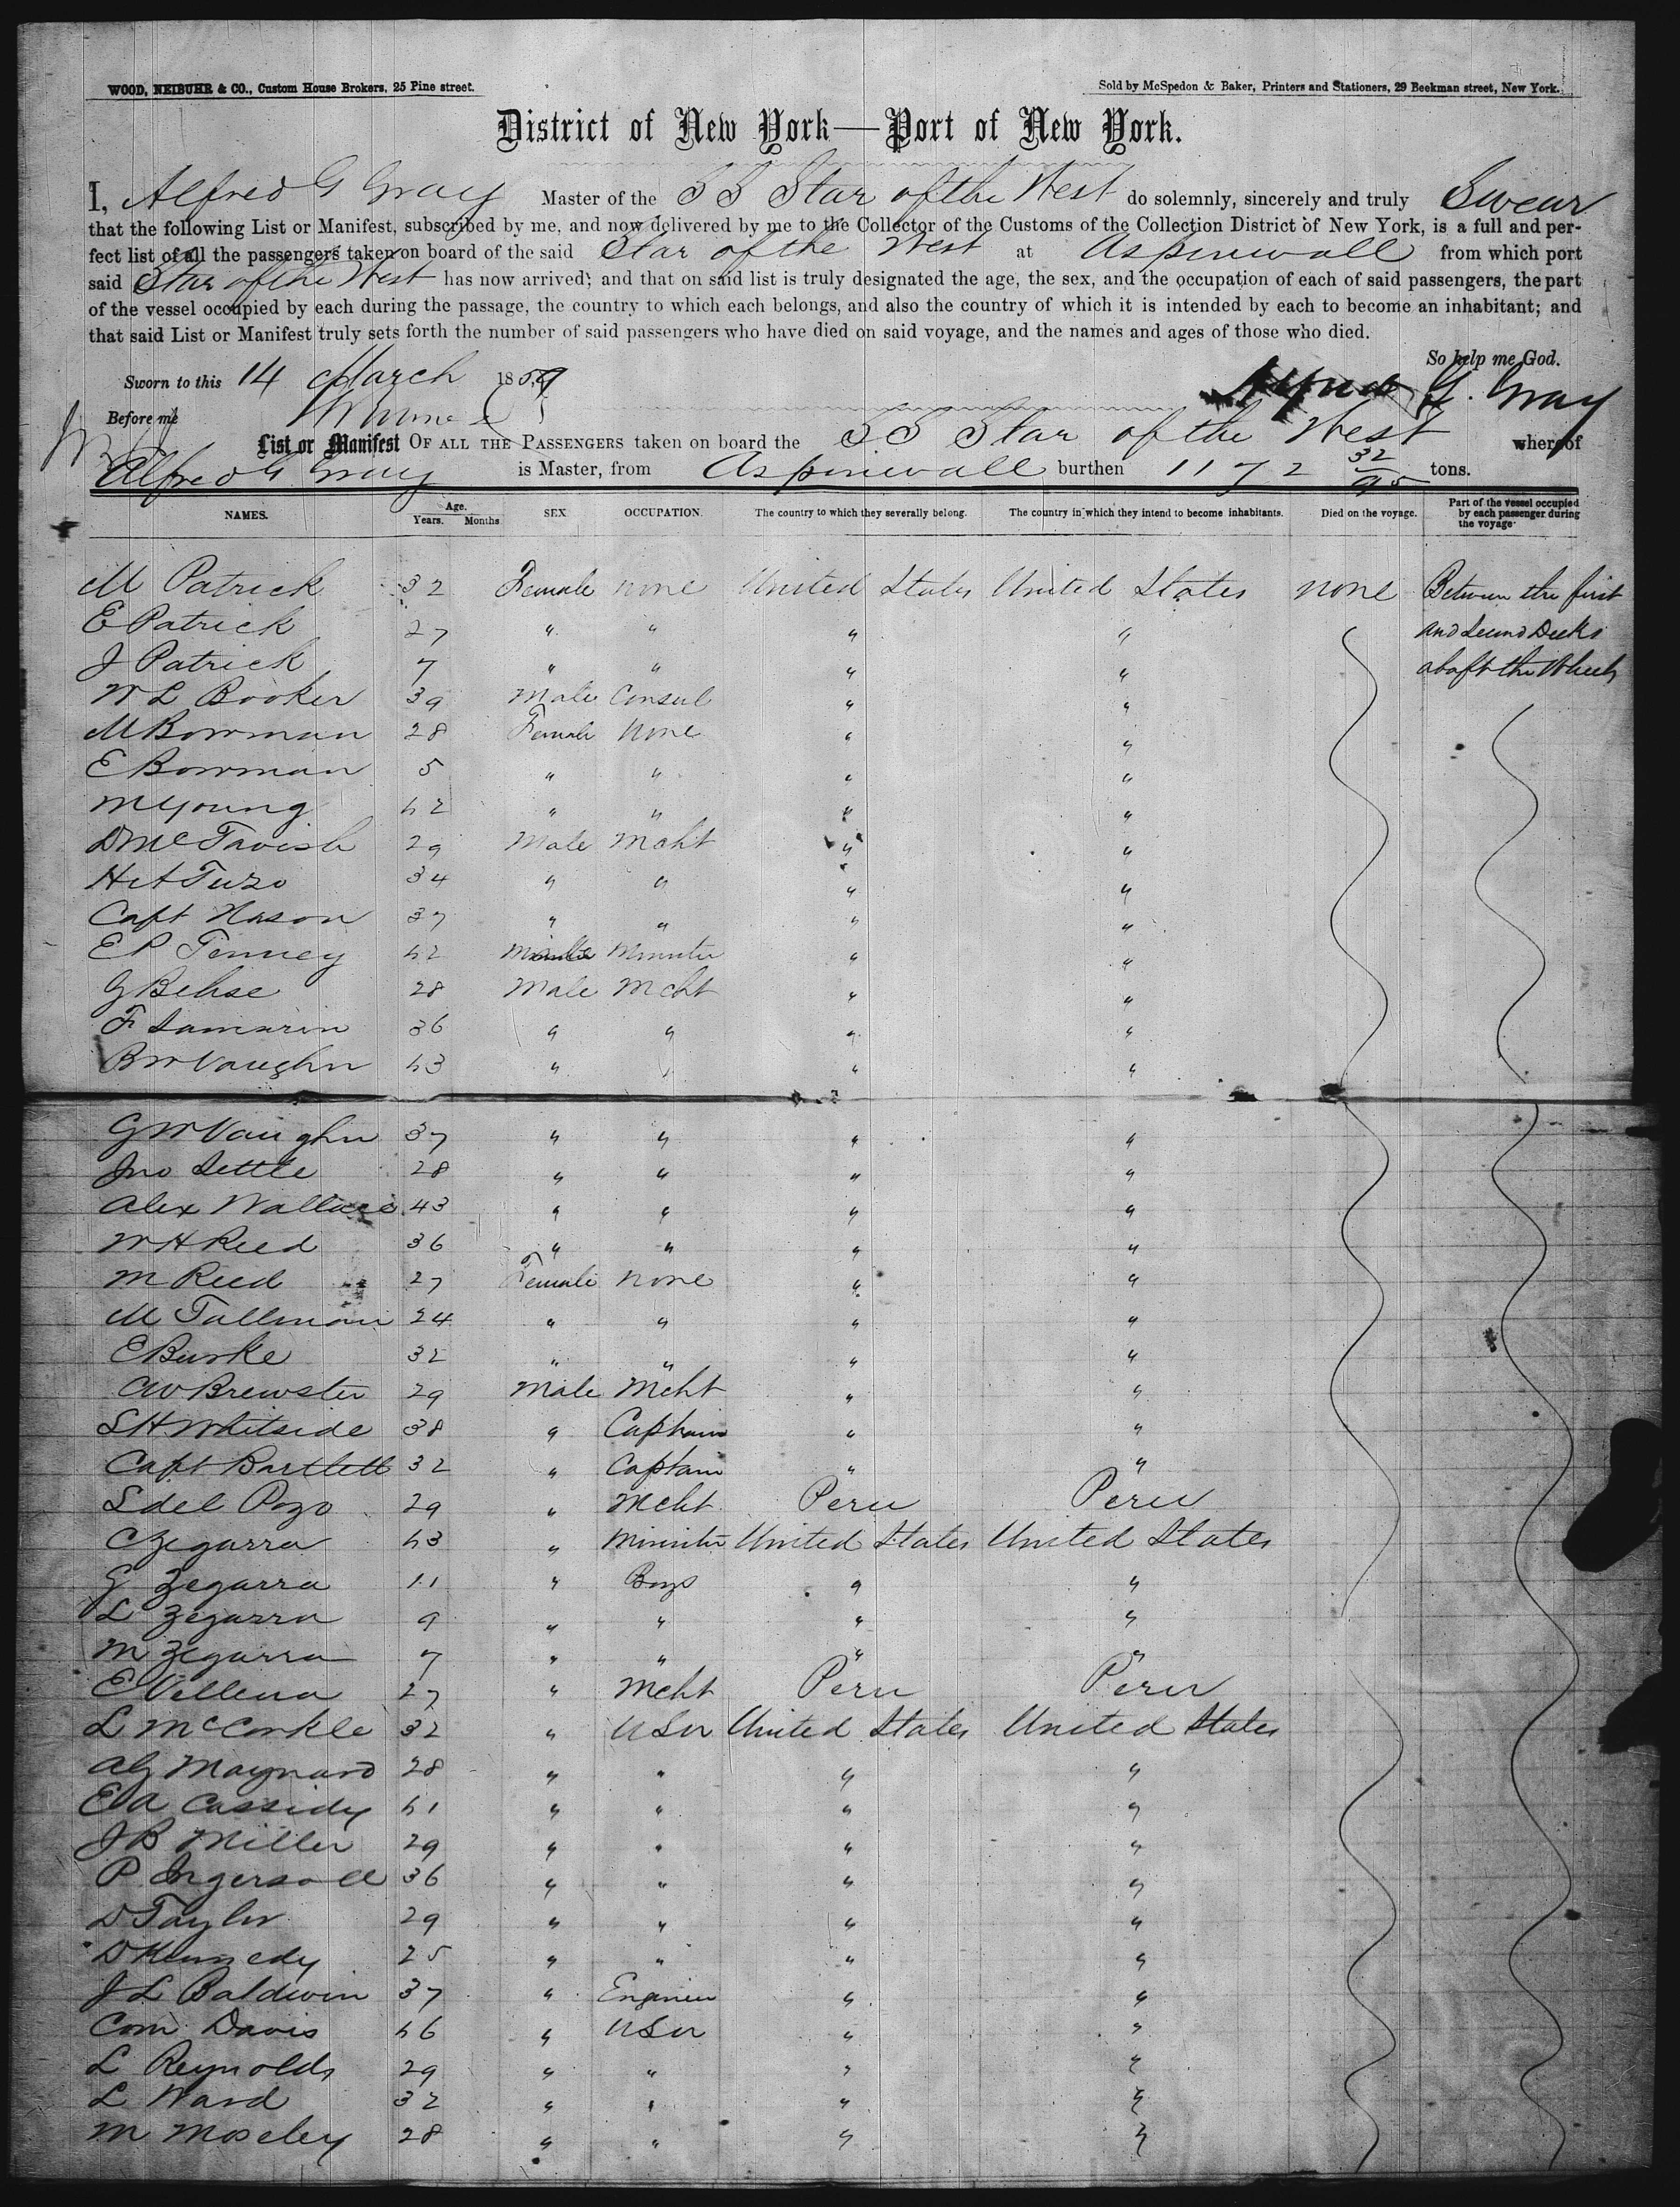 WOOD, NEIBUHR & CO., Custom House Brokers, 25 Pine street.
Sold by McSpedon & Baker, Printers and Stationers, 29 Beekman street, New York.
District of New York—Port of New York.
I, Alfred G Gray Master of the SS Star of the West do solemnly, sincerely and truly Swear
that the following List or Manifest, subscribed by me, and now delivered by me to the Collector of the Customs of the Collection District of New York, is a full and per-
fect list of all the passengers taken on board of the said Star of the West at Aspinwall from which port
said Star of the West has now arrived; and that on said list is truly designated the age, the sex, and the occupation of each of said passengers, the part
of the vessel occupied by each during the passage, the country to which each belongs, and also the country of which it is intended by each to become an inhabitant; and
that said List or Manifest truly sets forth the number of said passengers who have died on said voyage, and the names and ages of those who died.
So help me God.
Sworn to this 14 March 1859
Alfred G. Gray
Before me
List or Manifest OF ALL THE PASSENGERS taken on board the SS Star of the West whereof
Alfred G Gray is Master, from Aspinwall burthen 1172 32/95 tons.
NAMES. Age. Years. Months. SEX. OCCUPATION. The country to which they severally belong. The country in which they intend to become inhabitants. Died on the voyage. Part of the vessel occupied by each passenger during the voyage
M Patrick 32 Female none United States United States none Between the first
E Patrick 27 " " " " and Second Decks
J Patrick 7 " " " " abaft the Wheels
W L Booker 39 Male Consul " "
M Bowman 28 Female None " "
E Bowman 5 " " " "
M Young 42 " " " "
D McTavish 29 Male Mcht " "
H A Tuzo 34 " " " "
Capt Nason 37 " " " "
E P Tenney 42 Minister " "
G Behse 28 Male Mcht " "
F Lamarin 36 " " " "
B W Vaughn 43 " " " "
G W Vaughn 37 " " " "
Jno Settle 28 " " " "
Alex Wallace 43 " " " "
W H Reed 36 " " " "
M Reed 27 Female None " "
M Tallman 24 " " " "
E Burke 32 " " " "
C W Brewster 29 Male Mcht " "
S H Whitside 38 " Captain " "
Capt Bartlett 32 " Captain " "
S del Pozo 29 " Mcht Peru Peru
C Zegarra 43 " Minister United States United States
G Zegarra 11 " Boys " "
L Zegarra 9 " " " "
M Zegarra 7 " " " "
E Villena 27 " Mcht Peru Peru
L McCorkle 32 " USN United States United States
A G Maynard 28 " " " "
E A Cassidy 41 " " " "
J B Miller 29 " " " "
P Ingersoll 36 " " " "
D Taylor 29 " " " "
D Kennedy 25 " " " "
J L Baldwin 37 " Engineer " "
Com Davis 46 " USN " "
L Reynolds 29 " " " "
L Ward 32 " " " "
M Moseley 28 " " " "